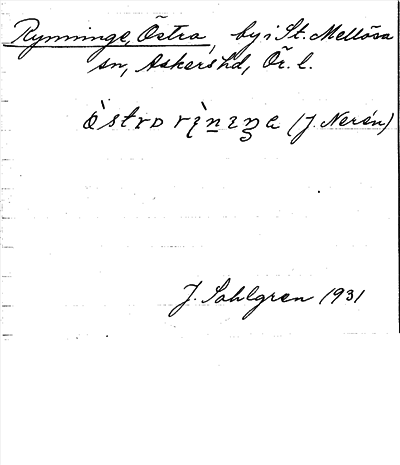 Rynninge, Östra, by i St. Mellösa
sn, Askers hd, Ör. l.
(J. Nerén)
J. Sahlgren 1931